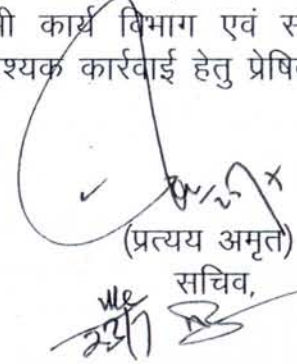 ी कार्य विभाग एवं स
श्यक कार्रवाई हेतु प्रेषि
(प्रत्यय अमृत)
सचिव,
23/7